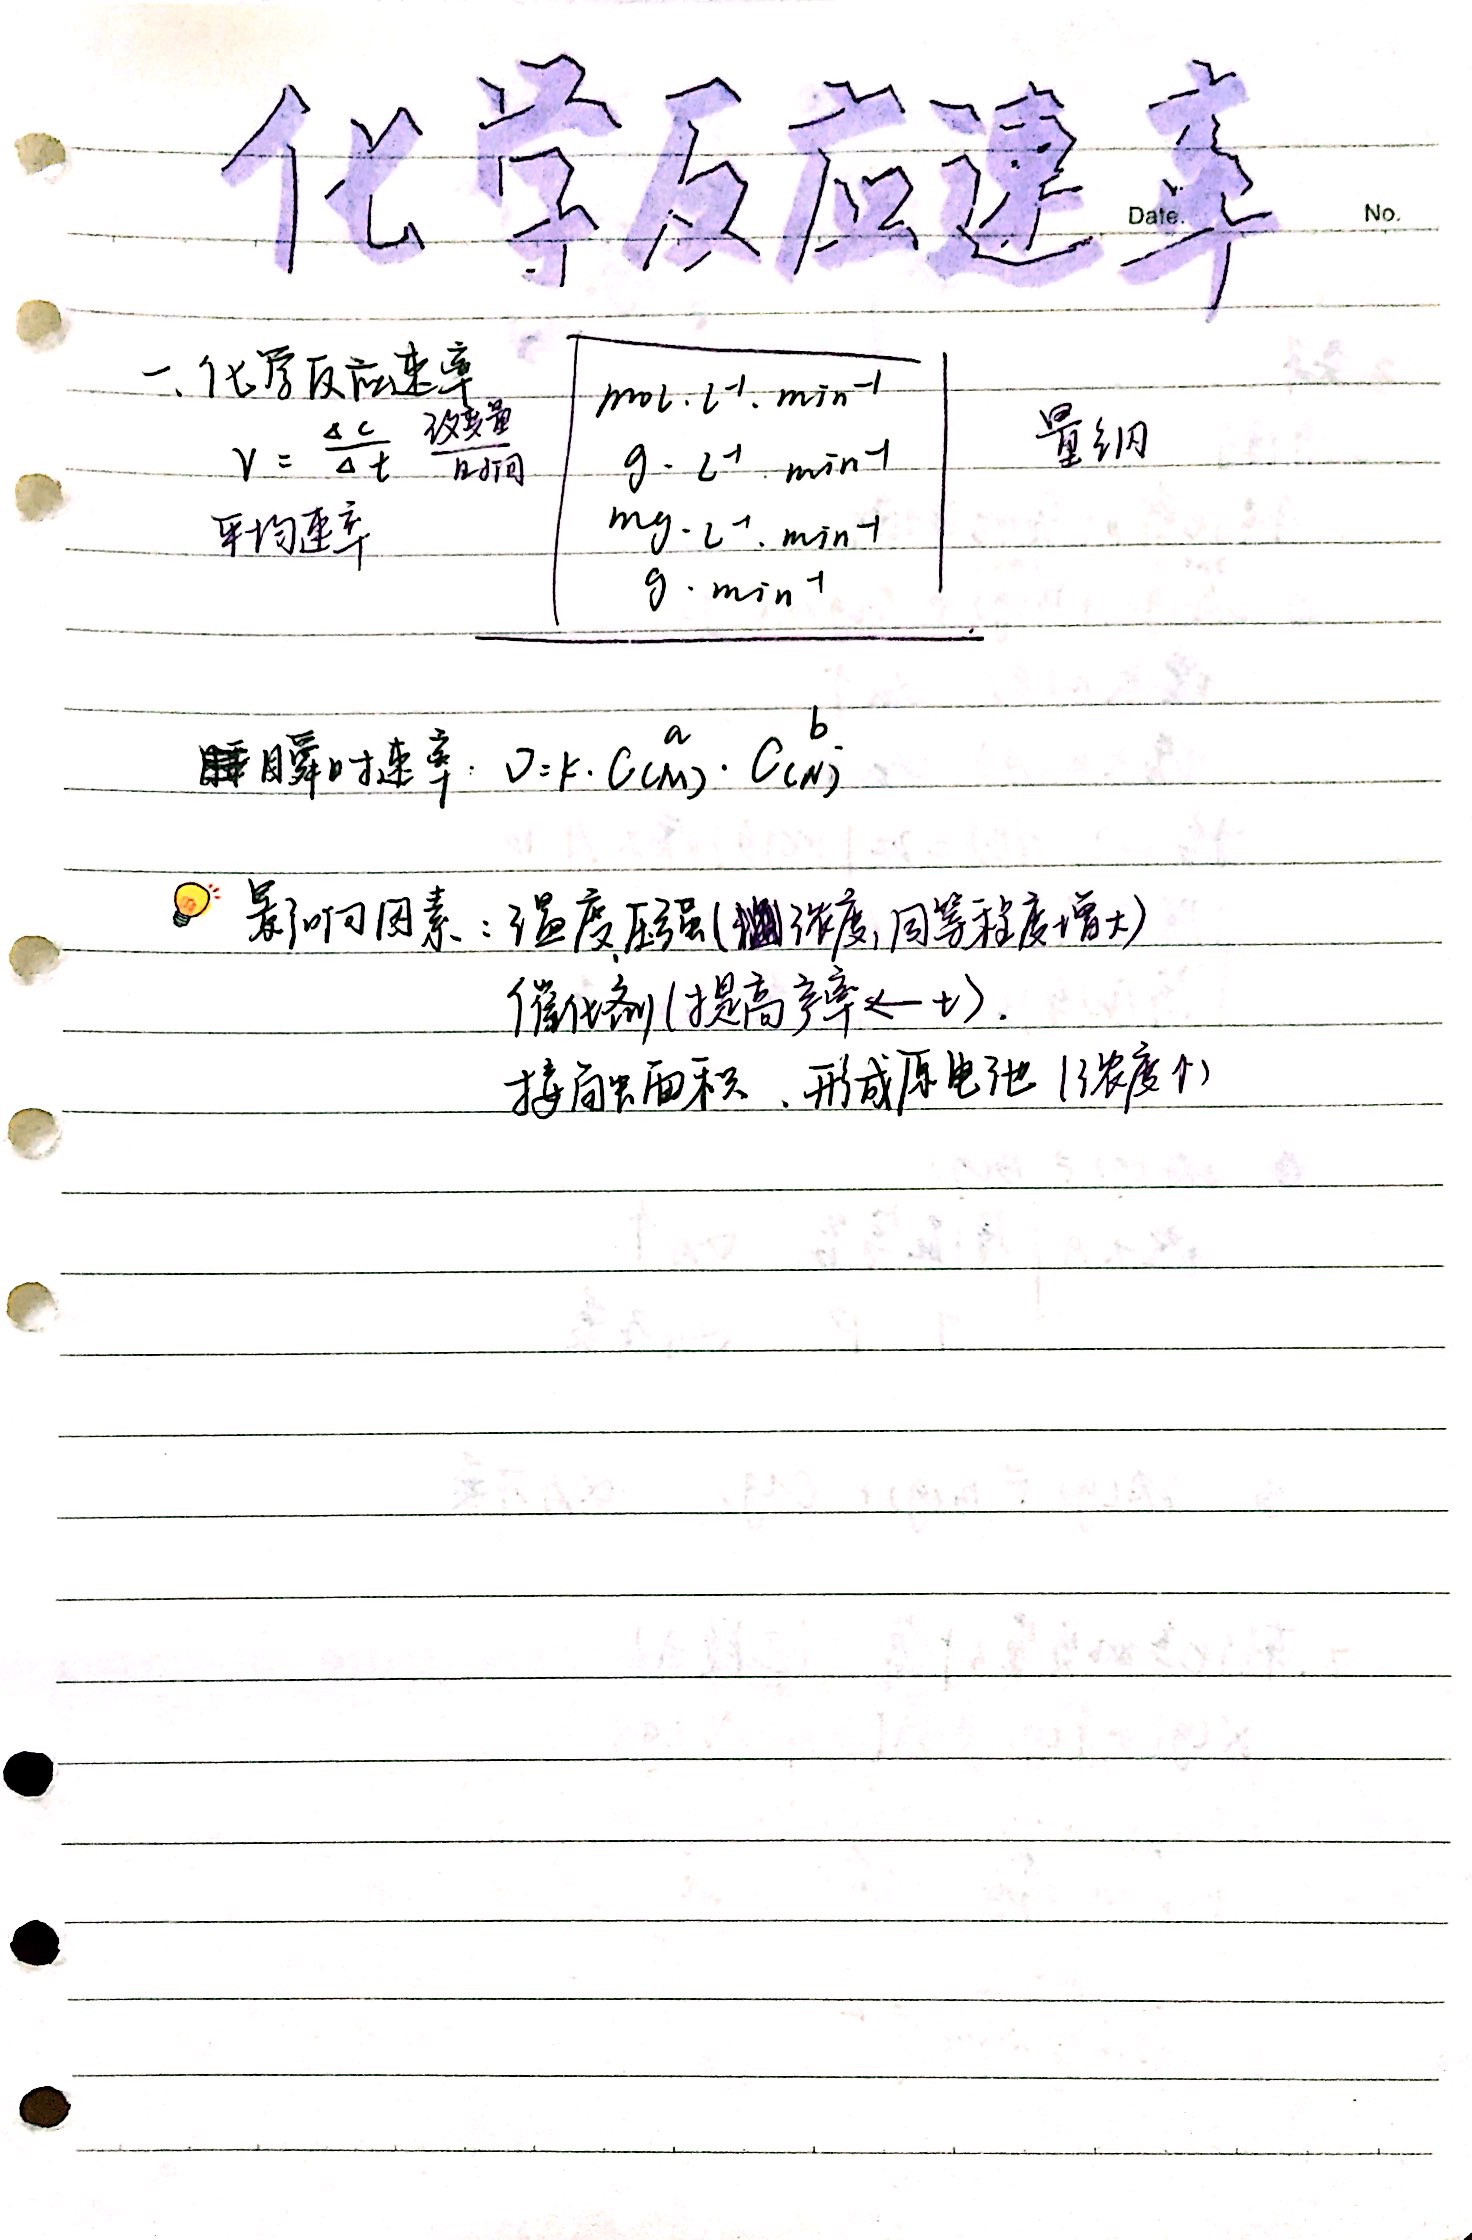 化学反应速率
Date. No.
一、化学反应速率
v = Δc/Δt 改变量/时间
平均速率
mol·L⁻¹·min⁻¹
g·L⁻¹·min⁻¹
mg·L⁻¹·min⁻¹
g·min⁻¹
量纲
瞬时速率: v=k·C(M)ᵃ·C(N)ᵇ
影响因素:温度、压强(浓度,同等程度增大)
催化剂(提高产率←t).
接触面积、形成原电池(浓度↑)